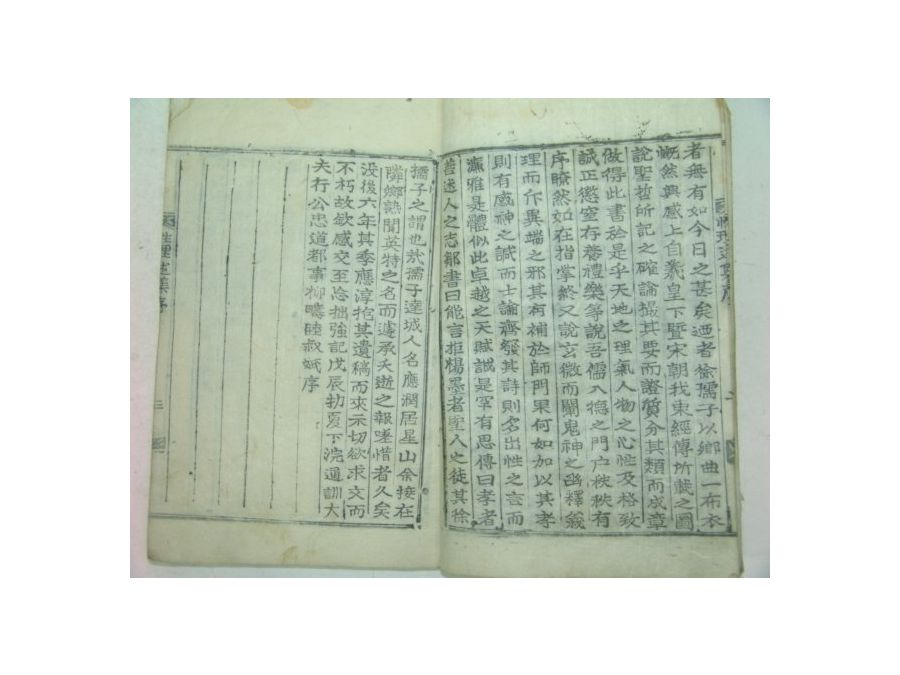 者無有如今日之甚矣迺者徐孺子以鄉曲一布衣
慨然興感上自羲皇下曁宋朝我東經傳所載之圖
說聖哲所記之確論撮其要而證質分其類而成章
做得此書於是乎天地之理氣人物之心性及格致
誠正懲窒存養禮樂等說吾儒入德之門户秩秩有
序瞭然如在指掌終又說玄微而闡鬼神之幽釋
理而斥異端之邪其有補於師門果何如加以其孝
則有感神之誠而士論齊發其詩則多出性之言而
濂雅是體似此卓越之天賦誠是罕有思傳曰孝者
善述人之志鄒書曰能言拒楊墨者聖人之徒其徐
孺子之謂也歟孺子達城人名應潤居星山余接在
隣鄕熟聞英特之名而遽承夭逝之報嗟惜者久矣
没後六年其季應淳抱其遺稿而來示切欲求文而
不朽故欲感交至忘拙強記戊辰初夏下浣通訓大
夫行公忠道都事柳疇睦叔 序
性理 集序
性理 集序
三